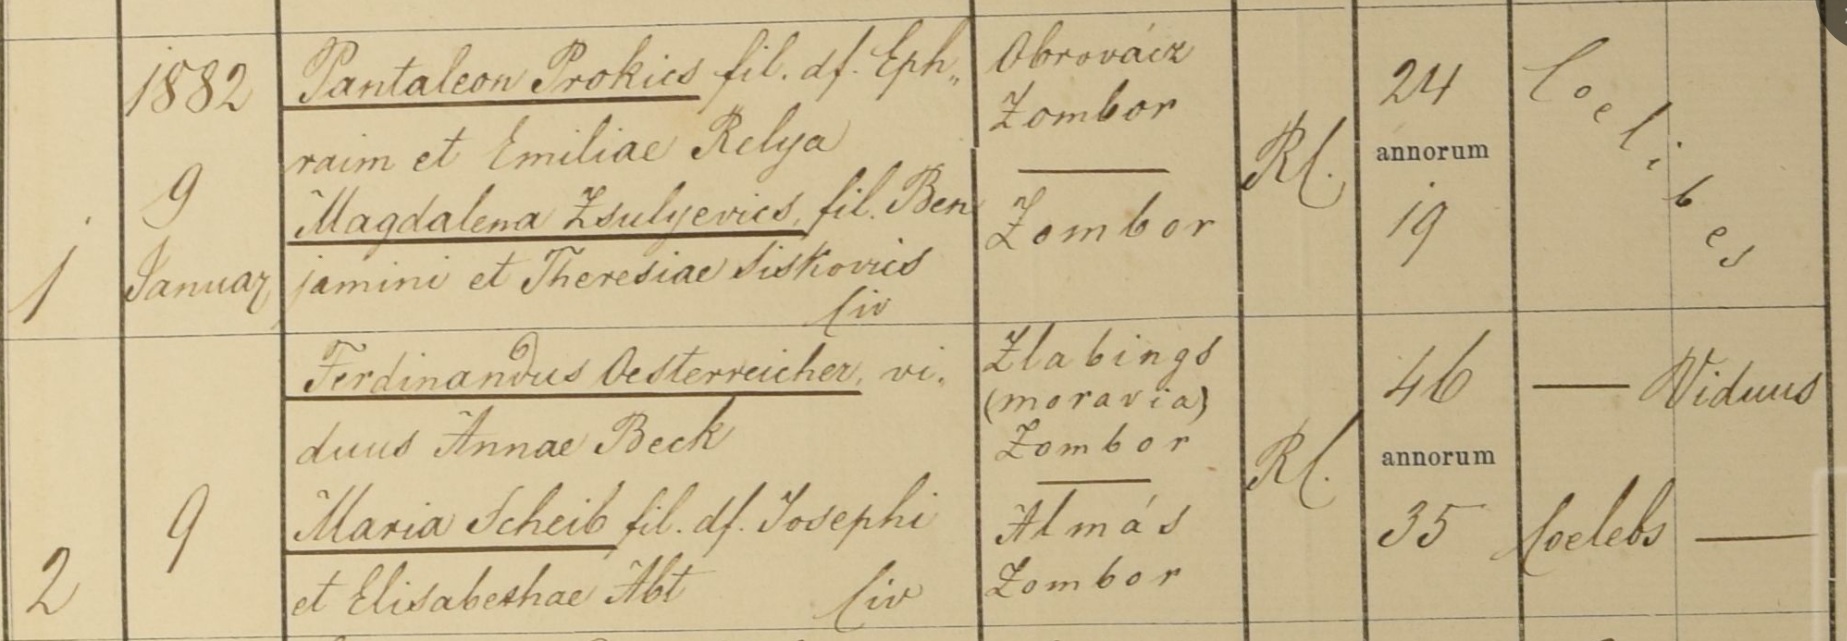 1
1882
9
Januar
Pantaleon Prokics fil. df. Eph„
raim et Emiliae Relya
Magdalena Zsulyevics, fil. Ben
jamini et Theresiae Siskovics
Civ
Obrovácz
Zombor
Zombor
Rl.
24
annorum
19
Coelibes
2
9
Ferdinandus Oesterreicher, vi„
duus Annae Beck
Maria Scheib fil. df. Josephi
et Elisabethae Abt Civ
Zlabings
(moravia)
Zombor
Almás
Zombor
Rl.
46
annorum
35
— Viduus
Coelebs —